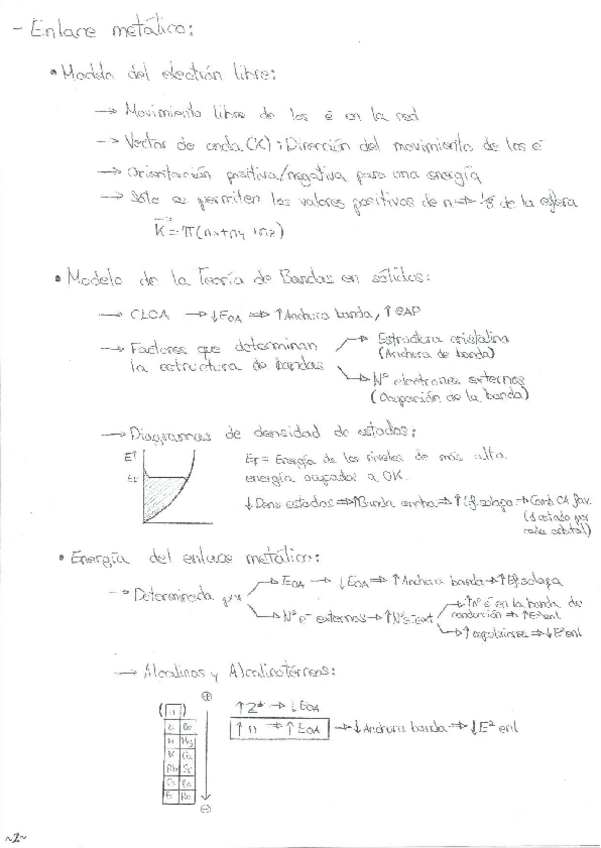 - Enlace metálico:
• Modelo del electrón libre:
→ Movimiento libre de los e⁻ en la red
→ Vector de onda (K): Dirección del movimiento de los e⁻
→ Orientación positiva/negativa para una energía
→ Sólo se permiten los valores positivos de n → 1/8 de la esfera
K = π(nx+ny+nz)
• Modelo de la Teoría de Bandas en sólidos:
→ CLOA → ↓EOA ⇒ ↑Anchura banda, ↑GAP
→ Factores que determinan la estructura de bandas
Estructura cristalina
(Anchura de banda)
Nº electrones externos
(Ocupación de la banda)
→ Diagramas de densidad de estados:
E↑
EF
EF = Energía de los niveles de más alta
energía ocupados a 0K.
↓Dens estados ⇒ ↑Banda ancha ⇒ ↑Ef. solapa → Comb. OA fav.
(1 estado por
cada orbital)
• Energía del enlace metálico:
→ Determinada por
EOA → ↓EOA ⇒ ↑Anchura banda → ↑Ef. solapa
Nº e⁻ externos → ↑Nº e⁻ ext
↑Nº e⁻ en la banda de
conducción ⇒ ↑Eª enl
↑repulsiones ⇒ ↓Eª enl
→ Alcalinos y Alcalinotérreos:
⊕
Na Mg
K Ca
Rb Sr
Cs Ba
Fr Ra
⊖
↑Z* → ↓EOA
↑n → ↑EOA → ↓Anchura banda ⇒ ↓Eª enl
~2~